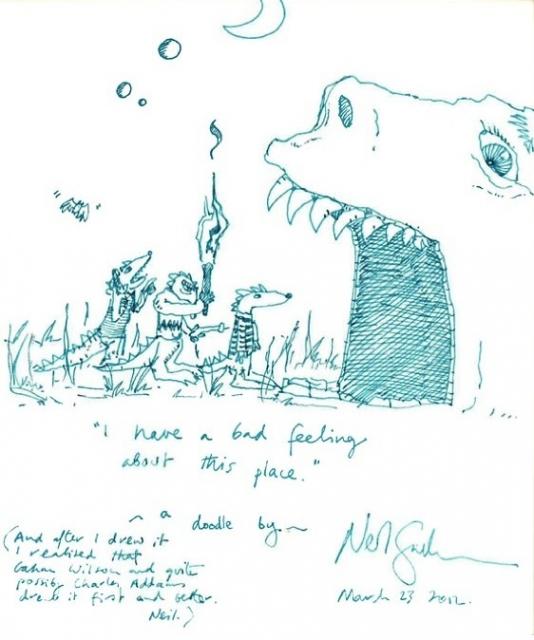 "I have a bad feeling
about this place."
~ a doodle by ~
Neil Gaiman
March 23 2012.
(And after I drew it
I realised that
Gahan Wilson and quite
possibly Charles Addams
drew it first and better.
Neil.)